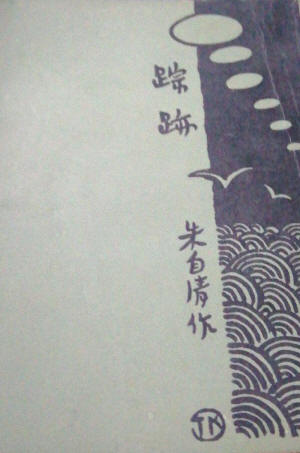 踪跡
朱自清作
TK